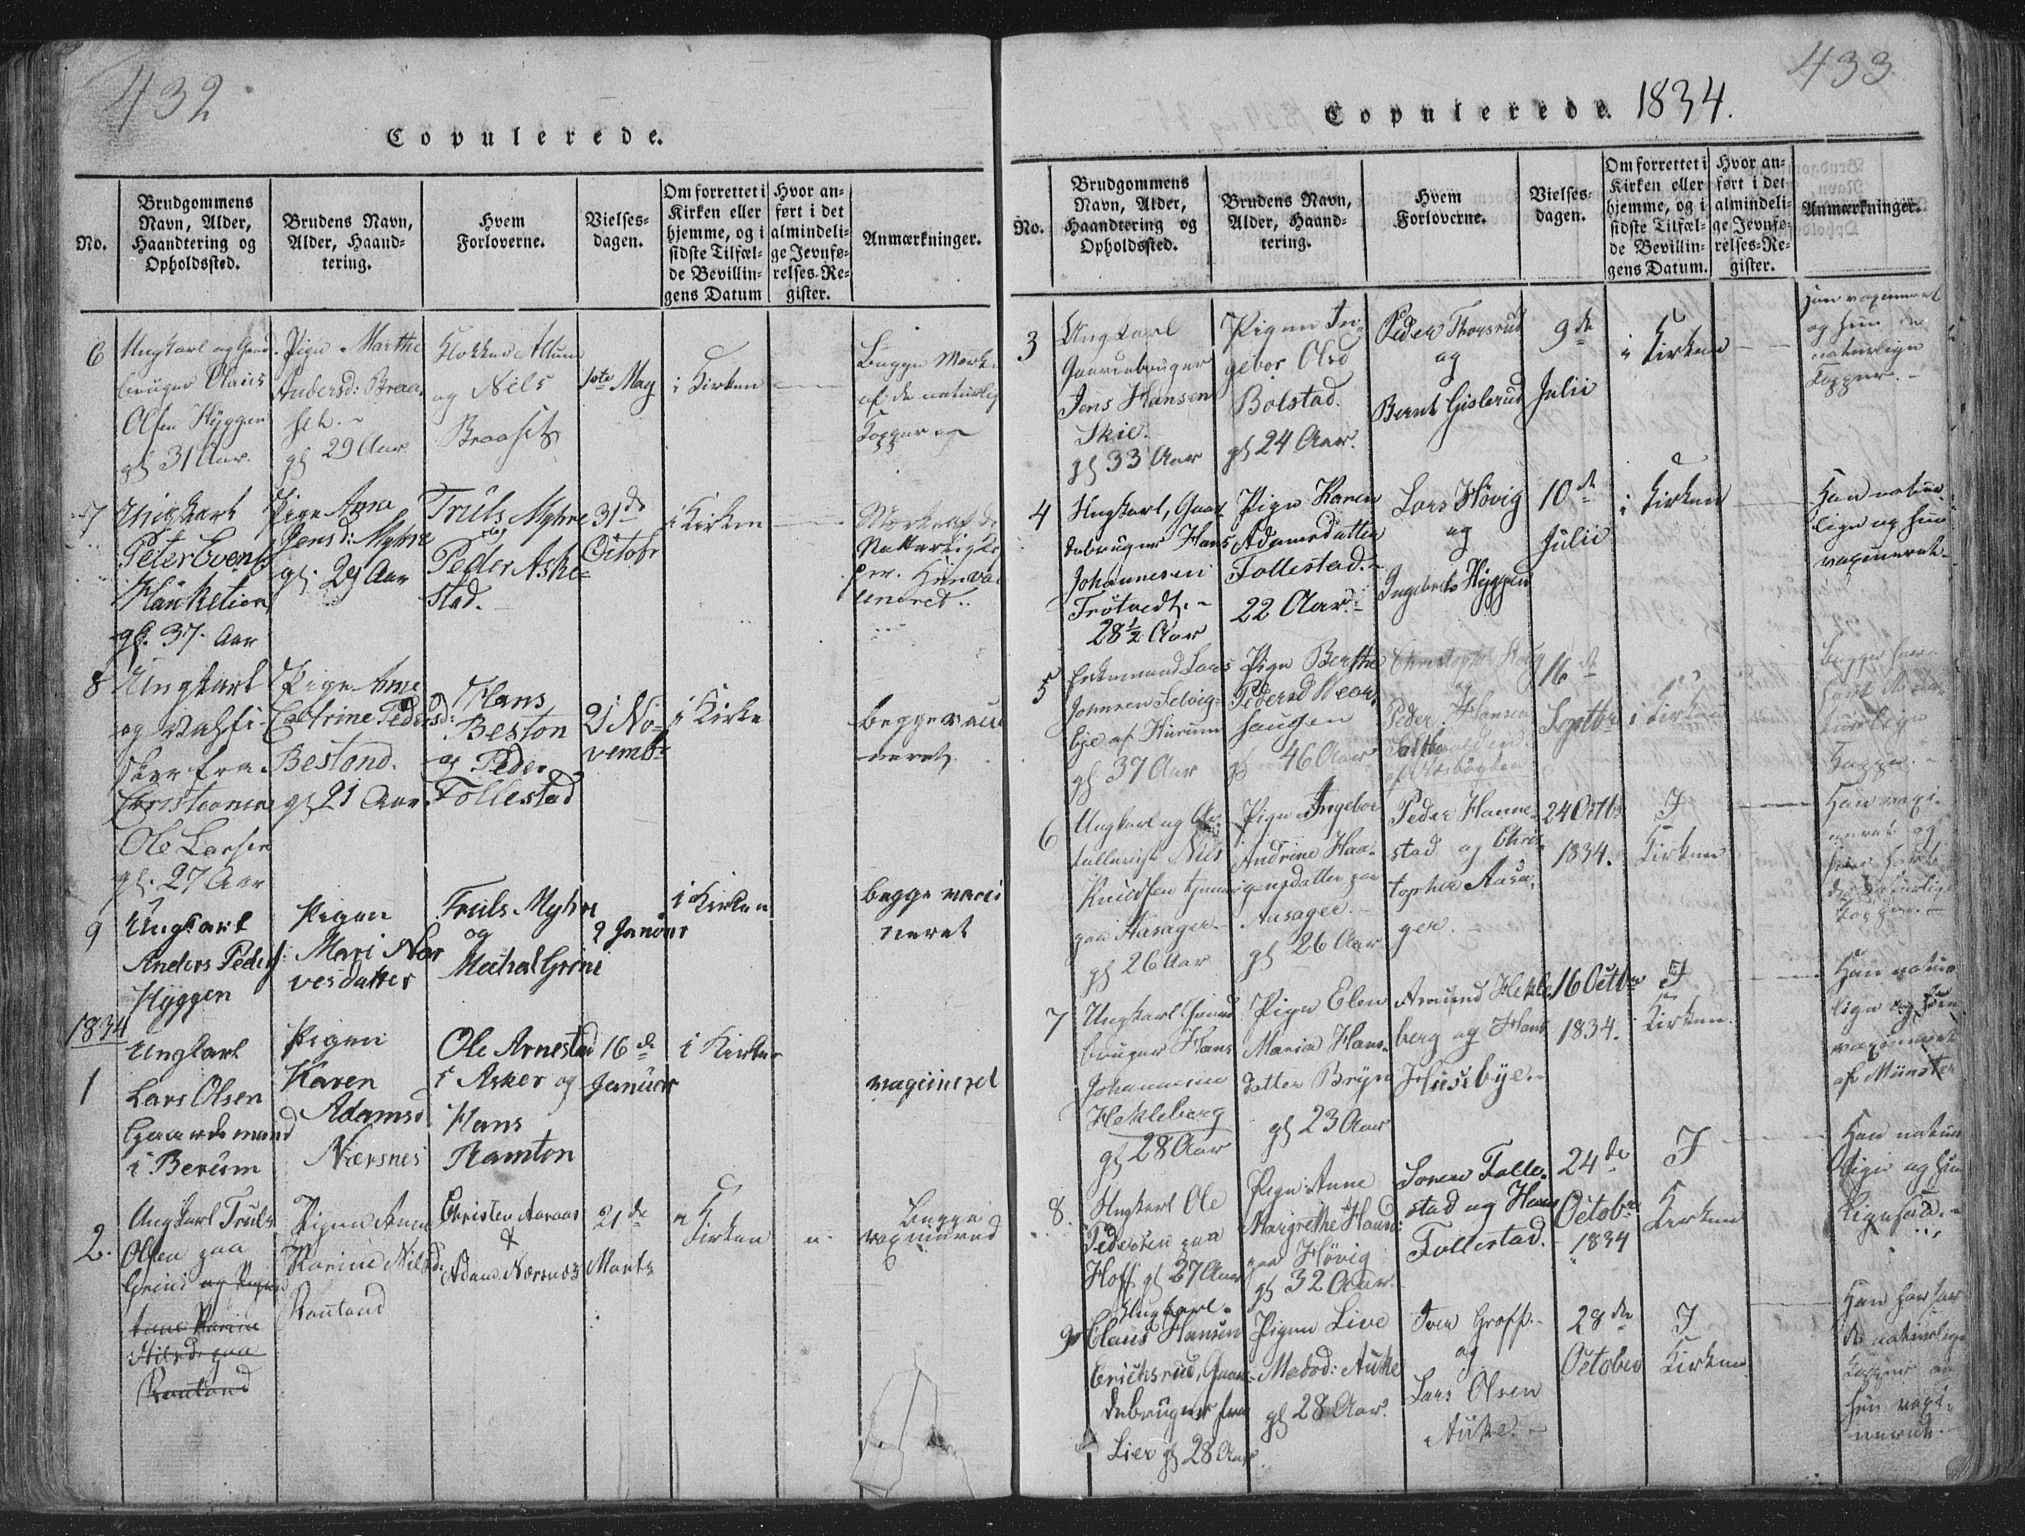 432
Copulerede.
No.
Brudgommens
Navn, Alder,
Haandtering og
Opholdssted.
Brudens Navn,
Alder, Haand-
tering.
Hvem
Forloverne.
Vielses-
dagen.
Om forrettet i
Kirken eller
hjemme, og i
sidste Tilfæl-
de Bevillin-
gens Datum
Hvor an-
ført i det
almindeli-
ge Jevnfø-
relses-Re-
gister.
Anmærkninger.
6
Ungkarl og Gaard-
bruger Claus
Olsen Hyggen
gl 31 Aar.
Pige Marthe
Andersd: Braa-
set.
gl 29 Aar
Klokker
og Nils
Braaset
1ste May
i Kirken
Begge Mærke
af de naturlig
Kopper
7
Ungkarl
Peter Evens
gl. 37. Aar
Pige Anna
Jensd: Myhre
gl. 29 Aar
Truls Myhre
og
Peder Aske-
stad.
31 de
Octobr
i Kirken
Mærke af de
8
Ungkarl
og
fra
Christiania
Ole Larsen
gl. 27 Aar
Pige Anne
Catrine Peders d:
Bestond.
gl 21 Aar
Hans
Beston
og Peder
Follestad
21 No-
vembr
i Kirke
begge vaci
neret
9
Ungkarl
Anders Peders
Hyggen
Pigen
Mari Nar
vesdatter
Truls Myhre
og
Michal Grini
2 Januar
i Kirken
begge vaci
neret
1834
1
Ungkarl
Lars Olsen
Gaardemand
i Berum
Pigen
Karen
Adamsd
Nærsnes
Ole Arnestad
i Asker og
Hans
Ramton
16 de
Januar
i Kirken
vacineret
2.
Ungkarl Truls
Olsen paa
Grini og Pigen
Anne Karine
Nilsd: paa
Rautand
Pigen Anne
Karine Nilsd:
Rautand
Christen Aaraas
&
Adam Nærsnes
21 de
Marts
Kirken
Begge
vaxinered
433
Copulerede. 1834.
No.
Brudgommens
Navn, Alder,
Haandtering og
Opholdssted.
Brudens Navn,
Alder, Haand-
tering.
Hvem
Forloverne.
Vielses-
dagen.
Om forrettet i
Kirken eller
hjemme, og i
sidste Tilfæl-
de Bevillin-
gens Datum.
Hvor an-
ført i det
almindeli-
ge Jevnfø-
relses-Re-
gister.
Anmærkninger.
3
Ungkarl
Gaardebruger
Jens Hansen
Skie.
gl 33 Aar
Pigen In-
gebor Olsd
Bolstad.
gl 24 Aar.
Peder Thorsrud
og
Bernt Gislerud
9 de
Julii
i Kirken
Han vaxineret
og hun de
naturlige
Kopper.
4
Ungkarl, Gaar-
debruger Hans
Johannesen
Trøtvedt.
28 1/2 Aar
Pigen Karen
Adamsdatter
Follestad.
22 Aar.
Lars Høvig
og
Ingebret Hyggen
10 de
Julii
i Kirken
Han natur-
lige og hun
vaxineret.
5
Enkemand Lars
Johnsen Selvig-
af Hurum
gl 37 Aar
Pigen Berthe
Pedersd
haugen
gl 46 Aar
Christopher
og
Peder Hansen
16 de
Septbr
i Kirken
Begge have
naturlige
Kopper.
6
Ungkarl og
Nils
Knudsen
paa Aasager.
gl 26 Aar
Pigen Ingebor
Andrine Haa-
gensdatter paa
Aasager.
gl 26 Aar
Peder Hanne-
stad og Chris-
topher Aasa-
ger.
24 Octbr
1834.
I
Kirken
Han vaxi-
neret og
hun havt
de naturlige
Kopper.
7
Ungkarl
bruger Hans
Johannesen
Hekleberg
gl 28 Aar
Pigen Elen
Maria Hans-
datter Bryn
gl 23 Aar
Amund Hekle-
berg og Hans
Husebye.
16 Octbr
1834.
I
Kirken.
Han natur-
lige og hun
vaxineret
af Münster
8.
Ungkarl Ole
Pedersen paa
Hoff gl 27 Aar
Pigen Anne
Margrethe Hansd:
paa Høvig
gl 32 Aar.
Soren Folle-
stad og Hans
Follestad.
24 de
Octobr
1834
I
Kirken
Han natur
lige og hun
ligesaa.
9
Ungkarl
Claus Hansen
Erichsrud, Gaar-
debruger fra
Lier gl 28 Aar
Pigen Live
Madsd: Auke
gl 28 Aar.
Iver Groff
og
Lars Olsen
Auke.
28 de
October
I
Kirken
Han har hav
de naturlige
Kopper og
hun vaxi-
neret.